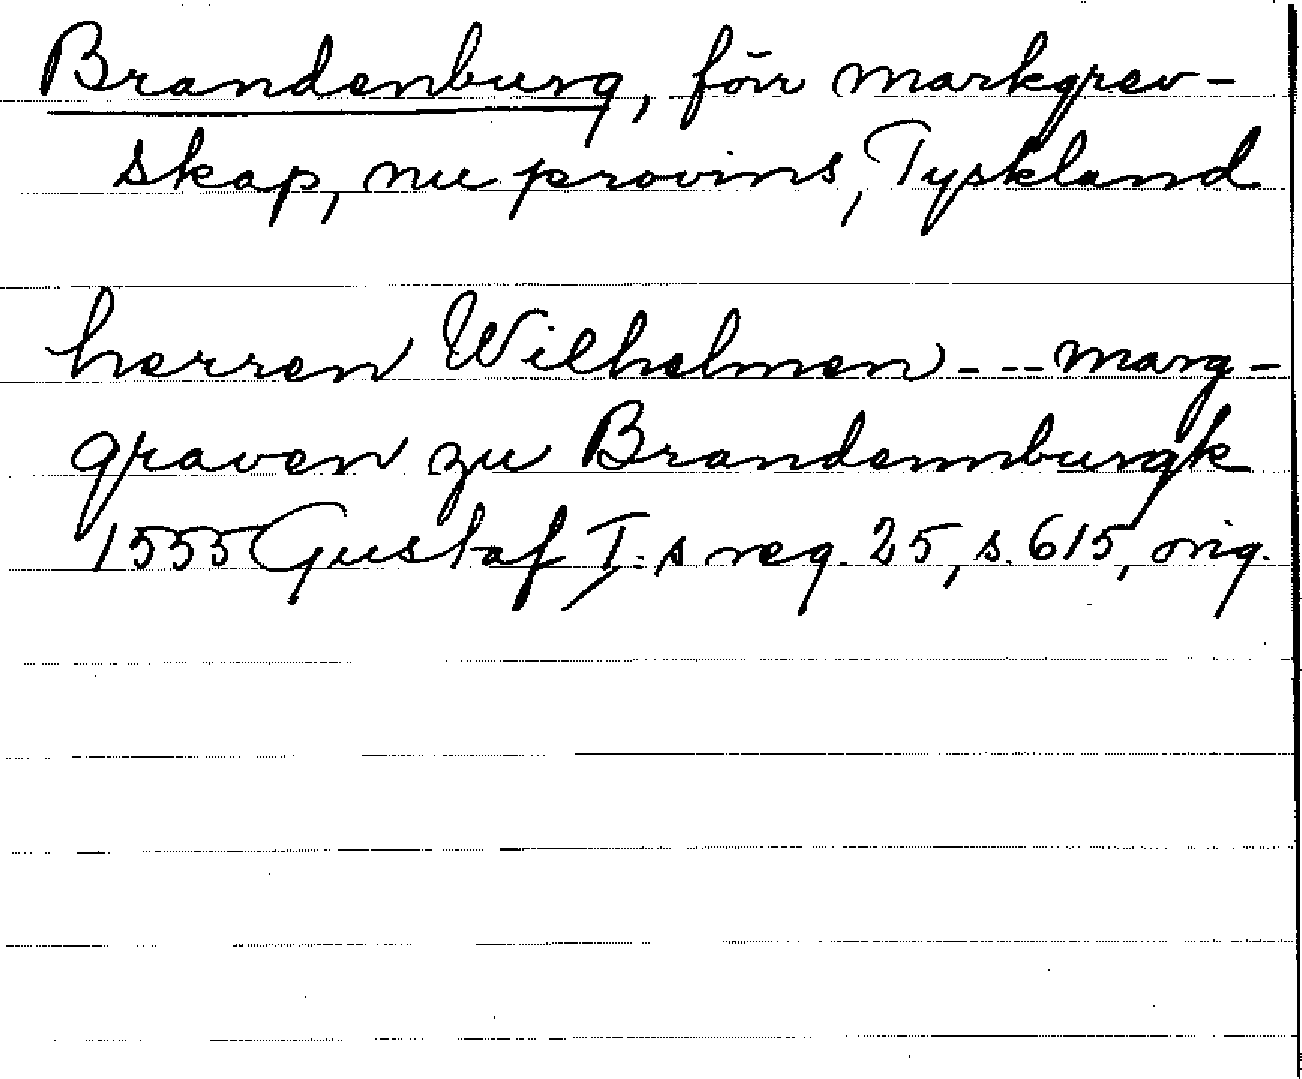 Brandenburg, förr markgrev-
skap, nu provins, Tyskland
herren Wilhelmen - - - marg-
graven zu Brandennburgk
1555 Gustaf I:s reg. 25, s. 615, orig.